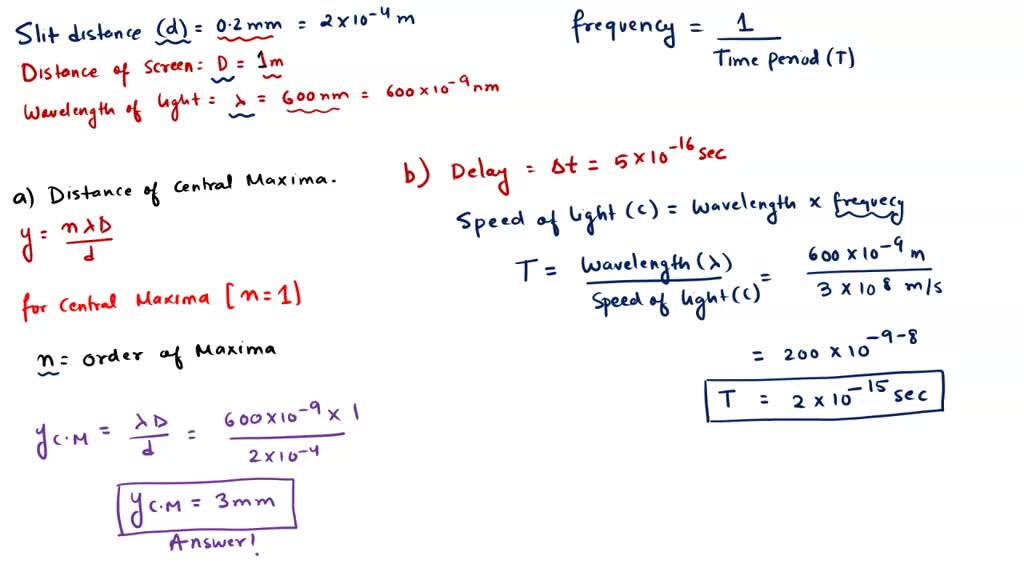 Slit distance (d) = 0.2mm = 2×10⁻⁴ m
Distance of screen: D = 1m
Wavelength of light = λ = 600nm = 600×10⁻⁹ nm
a) Distance of Central Maxima.
y = nλD / d
for Central Maxima [n=1]
n = order of Maxima
yC.M = λD / d = 600×10⁻⁹ × 1 / 2×10⁻⁴
yC.M = 3mm
Answer!
frequency = 1 / Time period (T)
b) Delay = Δt = 5×10⁻¹⁶ sec
Speed of light (c) = wavelength × frequecy
T = Wavelength (λ) / Speed of light (c) = 600×10⁻⁹ m / 3×10⁸ m/s
= 200 × 10⁻⁹⁻⁸
T = 2×10⁻¹⁵ sec